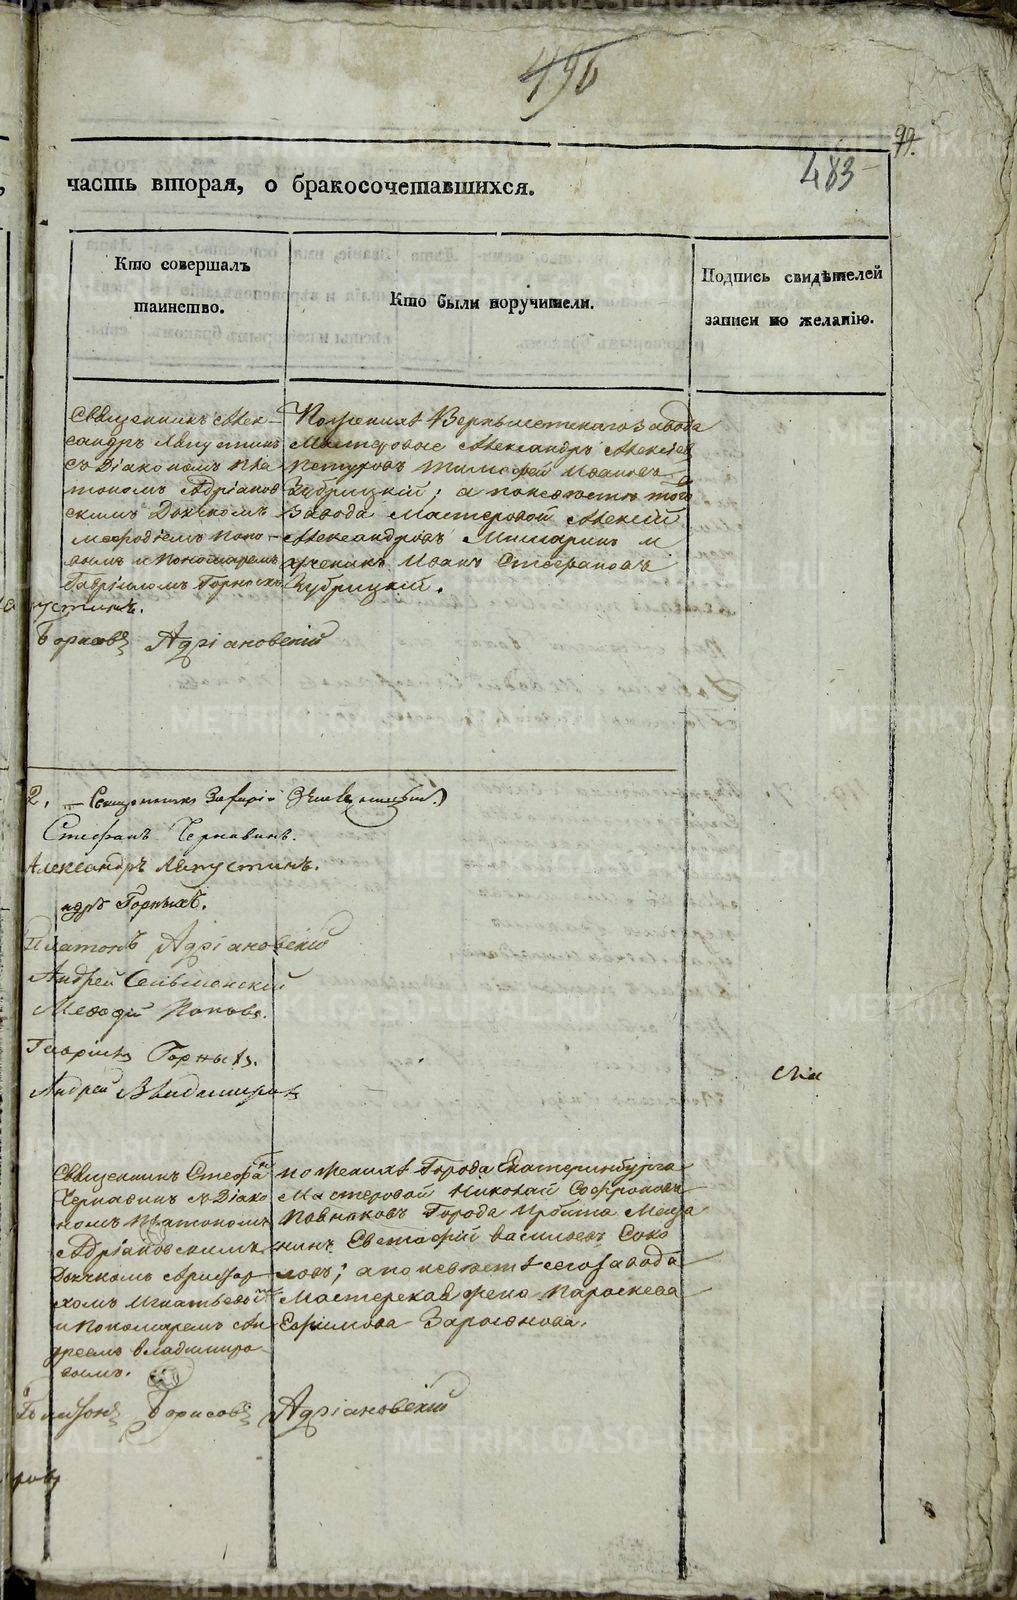 496
99.
483
часть вторая, о бракосочетавшихся.
Кто совершалъ
таинство.
Кто были поручители.
Подпись свидѣтелей
записи по желанію.
Священникъ Алек-
сандръ Лапустинъ
съ Діакономъ Пла
тономъ Адріанов
скимъ Дьячкомъ
Меѳодіемъ Попо-
вымъ и Пономаремъ
Гавріиломъ Горныхъ
По женихѣ Верхъисетскаго завода
Мастеровые Александръ Алексѣев
Тимофей Ивановъ
Зубрицкій; а по невѣстѣ того
Завода Мастеровой Алексій
Александровъ и
ученикъ Иванъ Стефановъ
Зубрицкій.
устинъ.
Борисовъ Адріановскій
2. Священникъ Захарій
Стефанъ Чернавинъ.
Александръ Лапустинъ.
ндръ Горныхъ.
Платонъ Адріановскій
Андрей Сельменскій
Меѳодій Поповъ.
Гавріилъ Горныхъ.
Андрей Владимировъ
Священникъ Стефанъ
Чернавинъ съ Діако
номъ Платономъ
Адріановскимъ
Дьячкомъ Аристар
хомъ Игнатьевой
и Пономаремъ Ан
дреемъ Владимиро
вымъ.
по женихѣ Города Екатеринбурга
Мастеровой Николай Софроновъ
Города Ирбита Меща
нинъ Евстафій Васильевъ Соко
ловъ; а по невѣстѣ сего завода
Мастерская жена Параскева
Ефимова
Борисовъ Адріановскій
ровъ
METRIKI.GASO-URAL.RU